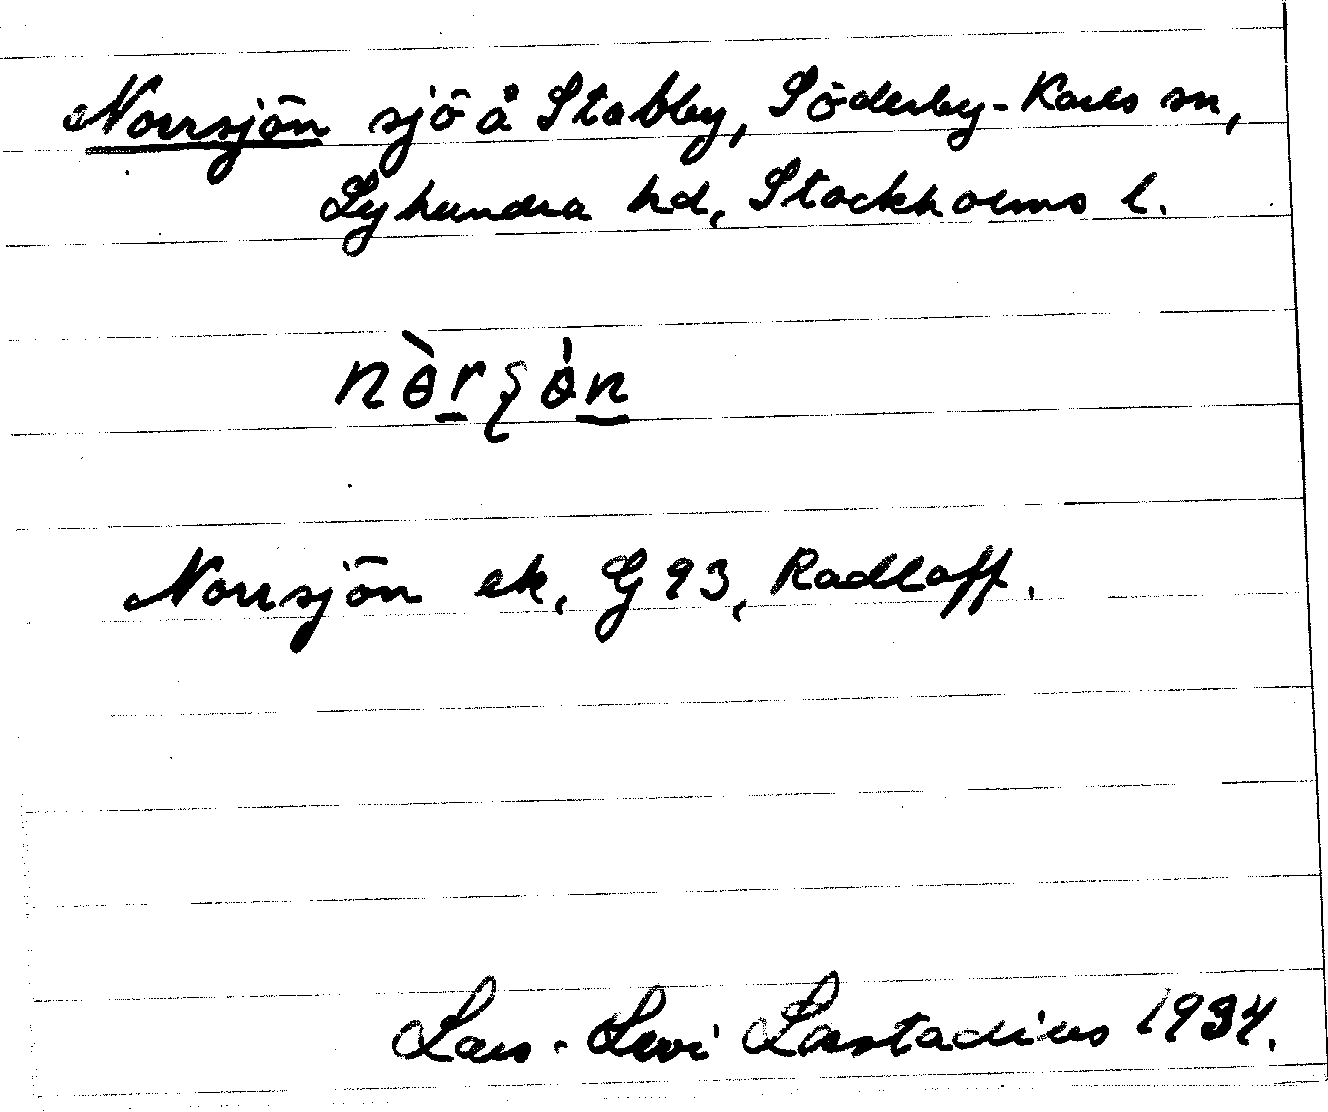 Norrsjön sjö å Stabby, Söderby-Karls sn,
Lyhundra hd, Stockholms l.
nèrʂɵ̀n
Norrsjön ek, G 93, Radloff.
Lars-Levi Læstadius 1934.